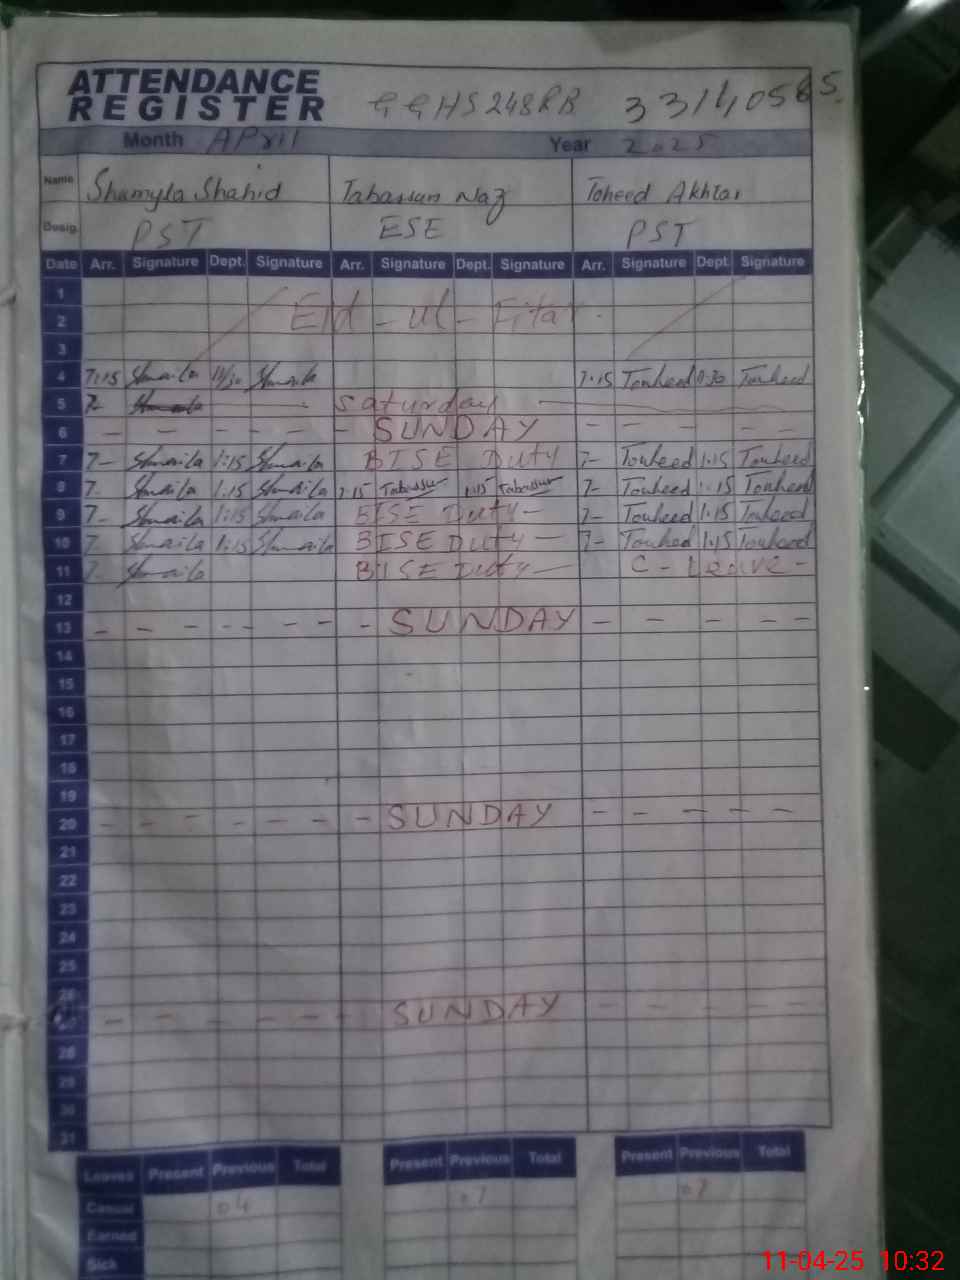 ATTENDANCE
REGISTER GGHS 248RB 33140565.
Month April Year 2025
Name Shumyla Shahid Tabassum Naz Toheed Akhtar
Desig. PST ESE PST
Date Arr. Signature Dept. Signature Arr. Signature Dept. Signature Arr. Signature Dept. Signature
1
2 Eid - ul - Fitar -
3
4 7:15 Shmaila 11/30 Shmaila 7:15 Touheed 11:30 Touheed
5 7- Shmaila Saturday
6 - - - - - - - SUNDAY - - - - -
7 7- Shmaila 1:15 Shmaila BISE Duty 7- Touheed 1:15 Touheed
8 7- Shmaila 1:15 Shmaila 7:15 Tabassum 1:15 Tabassum 7- Touheed 1:15 Touheed
9 7- Shmaila 1:15 Shmaila BISE Duty - 7- Touheed 1:15 Touheed
10 7- Shmaila 1:15 Shmaila BISE Duty - 7- Touheed 1:15 Touheed
11 7- Shmaila BISE Duty - C - Leave -
12
13 - - - - - - - - SUNDAY - - - - -
14
15
16
17
18
19
20 - - - - - - - SUNDAY - - - - -
21
22
23
24
25
26
27 - - - - - - - SUNDAY - - - - -
28
29
30
31
Leaves Present Previous Total Present Previous Total Present Previous Total
Casual 04 07 07
Earned
Sick
11-04-25 10:32